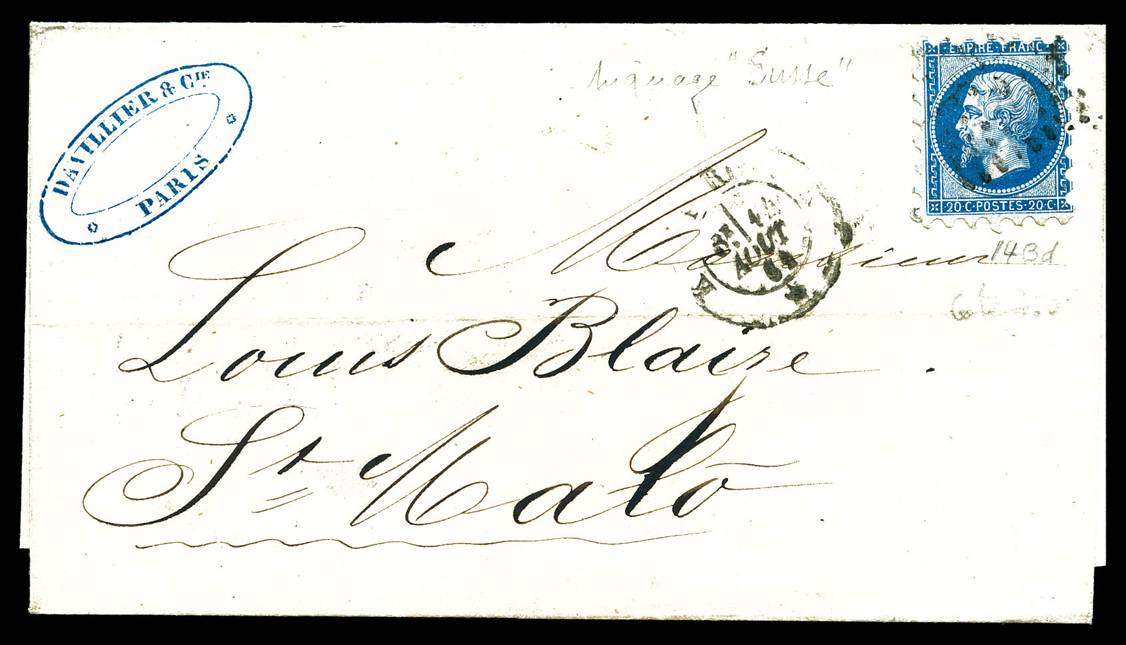 DAVILLIER & CIE
PARIS
"Susse"
EMPIRE FRANC
20 C·POSTES·20 C.
14Bd
AOUT
Monsieur
Louis Blaize
St Malo